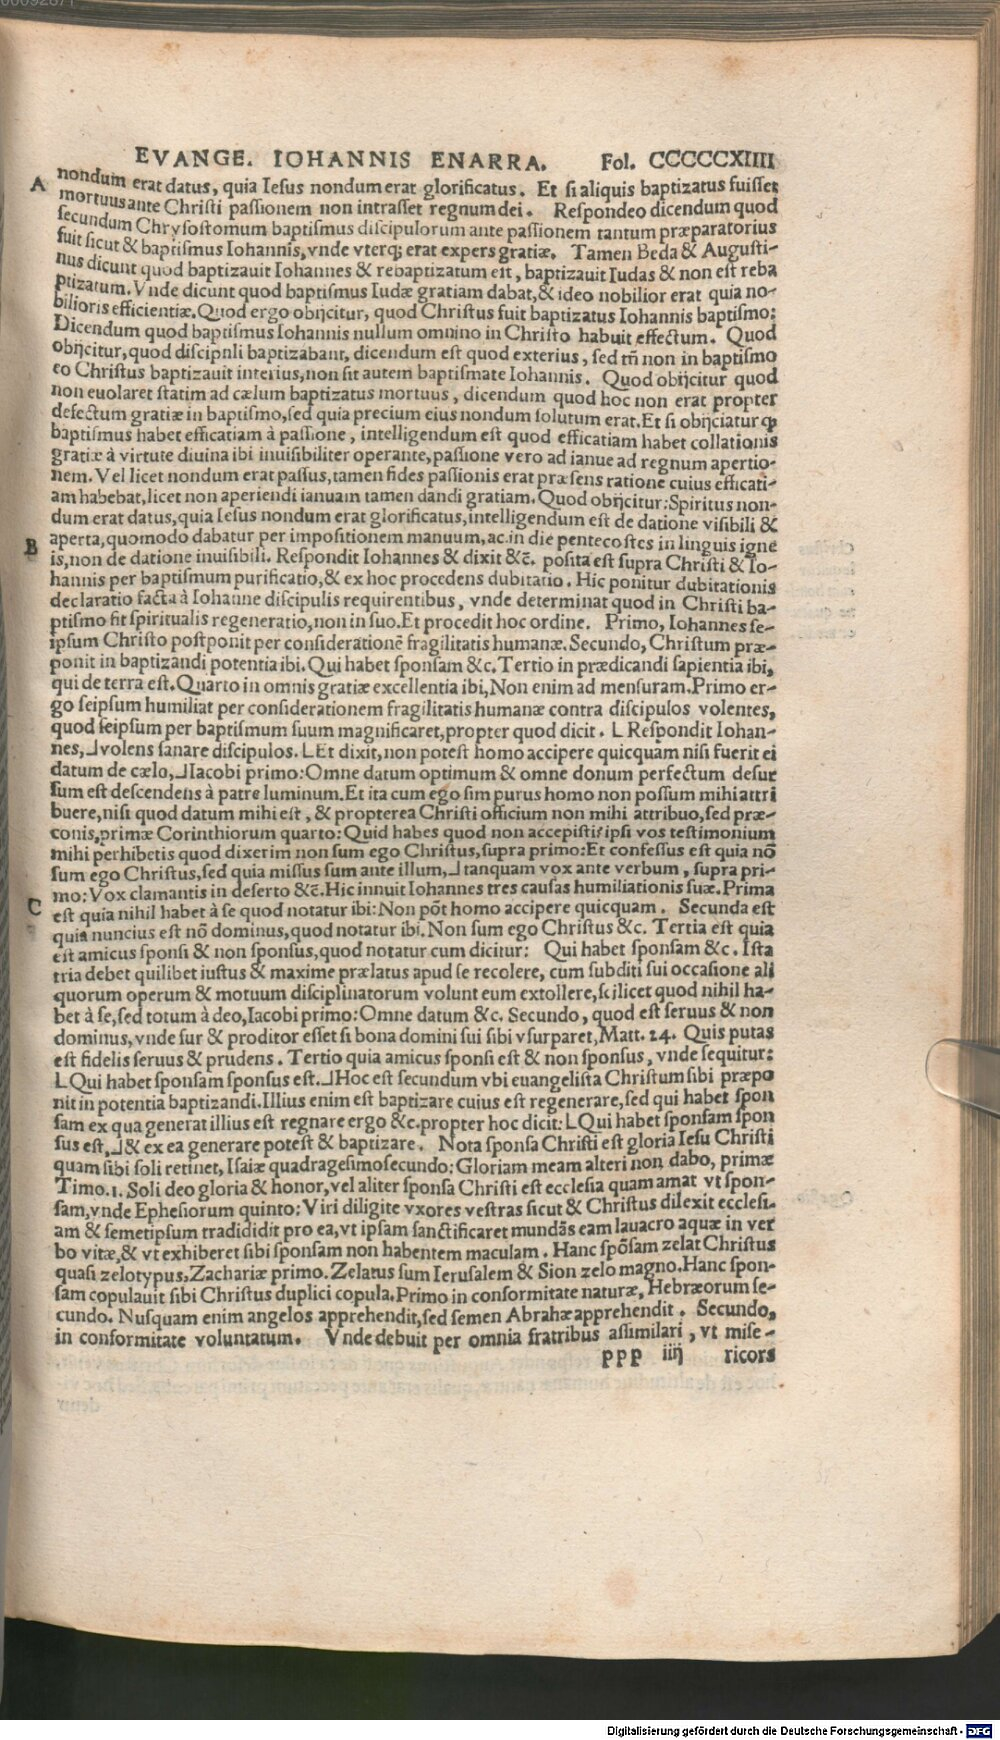 EVANGE. IOHANNIS ENARRA. Fol. CCCCCXIIII
A nondum erat datus, quia Iesus nondum erat glorificatus. Et si aliquis baptizatus fuisset
mortuus ante Christi passionem non intrasset regnum dei. Respondeo dicendum quod
secundum Chrysostomum baptismus discipulorum ante passionem tantum præparatorius
fuit sicut & baptismus Iohannis, vnde vterq; erat expers gratiæ. Tamen Beda & Augusti-
nus dicunt quod baptizauit Iohannes & rebaptizatum est, baptizauit Iudas & non est reba
ptizatum. Vnde dicunt quod baptismus Iudæ gratiam dabat, & ideo nobilior erat quia no-
bilioris efficientiæ. Quod ergo obijcitur, quod Christus fuit baptizatus Iohannis baptismo:
Dicendum quod baptismus Iohannis nullum omnino in Christo habuit effectum. Quod
obijcitur, quod discipnli baptizabant, dicendum est quod exterius, sed tñ non in baptismo
eo Christus baptizauit interius, non sit autem baptismate Iohannis. Quod obijcitur quod
non euolaret statim ad cælum baptizatus mortuus, dicendum quod hoc non erat propter
defectum gratiæ in baptismo, sed quia precium eius nondum solutum erat. Et si obijciatur ꝙ
baptismus habet efficatiam à passione, intelligendum est quod efficatiam habet collationis
gratiæ à virtute diuina ibi inuisibiliter operante, passione vero ad ianue ad regnum apertio-
nem. Vel licet nondum erat passus, tamen fides passionis erat præsens ratione cuius efficati-
am habebat, licet non aperiendi ianuam tamen dandi gratiam. Quod obijcitur: Spiritus non-
dum erat datus, quia Iesus nondum erat glorificatus, intelligendum est de datione visibili &
B aperta, quomodo dabatur per impositionem manuum, ac in die pentecostes in linguis igne
is, non de datione inuisibili. Respondit Iohannes & dixit &c̄. posita est supra Christi & Io-
hannis per baptismum purificatio, & ex hoc procedens dubitatio. Hic ponitur dubitationis
declaratio facta à Iohanne discipulis requirentibus, vnde determinat quod in Christi ba-
ptismo fit spiritualis regeneratio, non in suo. Et procedit hoc ordine. Primo, Iohannes se-
ipsum Christo postponit per considerationē fragilitatis humanæ. Secundo, Christum præ-
ponit in baptizandi potentia ibi. Qui habet sponsam &c. Tertio in prædicandi sapientia ibi,
qui de terra est. Quarto in omnis gratiæ excellentia ibi, Non enim ad mensuram. Primo er-
go seipsum humiliat per considerationem fragilitatis humanæ contra discipulos volentes,
quod seipsum per baptismum suum magnificaret, propter quod dicit. ⌊Respondit Iohan-
nes,⌋ volens sanare discipulos. ⌊Et dixit, non potest homo accipere quicquam nisi fuerit ei
datum de cælo,⌋ Iacobi primo: Omne datum optimum & omne donum perfectum desur
sum est descendens à patre luminum. Et ita cum ego sim purus homo non possum mihi attri
buere, nisi quod datum mihi est, & propterea Christi officium non mihi attribuo, sed præ-
conis, primæ Corinthiorum quarto: Quid habes quod non accepisti? ipsi vos testimonium
mihi perhibetis quod dixerim non sum ego Christus, supra primo: Et confessus est quia nō
sum ego Christus, sed quia missus sum ante illum,⌋ tanquam vox ante verbum, supra pri-
mo: Vox clamantis in deserto &c̄. Hic innuit Iohannes tres causas humiliationis suæ. Prima
C est quia nihil habet à se quod notatur ibi: Non pōt homo accipere quicquam. Secunda est
quia nuncius est nō dominus, quod notatur ibi. Non sum ego Christus &c. Tertia est quia
est amicus sponsi & non sponsus, quod notatur cum dicitur: Qui habet sponsam &c. Ista
tria debet quilibet iustus & maxime prælatus apud se recolere, cum subditi sui occasione ali
quorum operum & motuum disciplinatorum volunt eum extollere, scilicet quod nihil ha-
bet à se, sed totum à deo, Iacobi primo: Omne datum &c. Secundo, quod est seruus & non
dominus, vnde fur & proditor esset si bona domini sui sibi vsurparet, Matt. 24. Quis putas
est fidelis seruus & prudens. Tertio quia amicus sponsi est & non sponsus, vnde sequitur:
⌊Qui habet sponsam sponsus est.⌋ Hoc est secundum vbi euangelista Christum sibi præpo
nit in potentia baptizandi. Illius enim est baptizare cuius est regenerare, sed qui habet spon
sam ex qua generat illius est regnare ergo &c. propter hoc dicit: ⌊Qui habet sponsam spon
sus est,⌋ & ex ea generare potest & baptizare. Nota sponsa Christi est gloria Iesu Christi
quam sibi soli retinet, Isaiæ quadragesimosecundo: Gloriam meam alteri non dabo, primæ
Timo. 1. Soli deo gloria & honor, vel aliter sponsa Christi est ecclesia quam amat vt spon-
sam, vnde Ephesiorum quinto: Viri diligite vxores vestras sicut & Christus dilexit ecclesi-
am & semetipsum tradididit pro ea, vt ipsam sanctificaret mundās eam lauacro aquæ in ver
bo vitæ, & vt exhiberet sibi sponsam non habentem maculam. Hanc spōsam zelat Christus
quasi zelotypus. Zachariæ primo. Zelatus sum Ierusalem & Sion zelo magno. Hanc spon-
sam copulauit sibi Christus duplici copula. Primo in conformitate naturæ, Hebræorum se-
cundo. Nusquam enim angelos apprehendit, sed semen Abrahæ apprehendit. Secundo,
in conformitate voluntatum. Vnde debuit per omnia fratribus assimilari, vt mise-
ppp iiij ricors
Digitalisierung gefördert durch die Deutsche Forschungsgemeinschaft - DFG